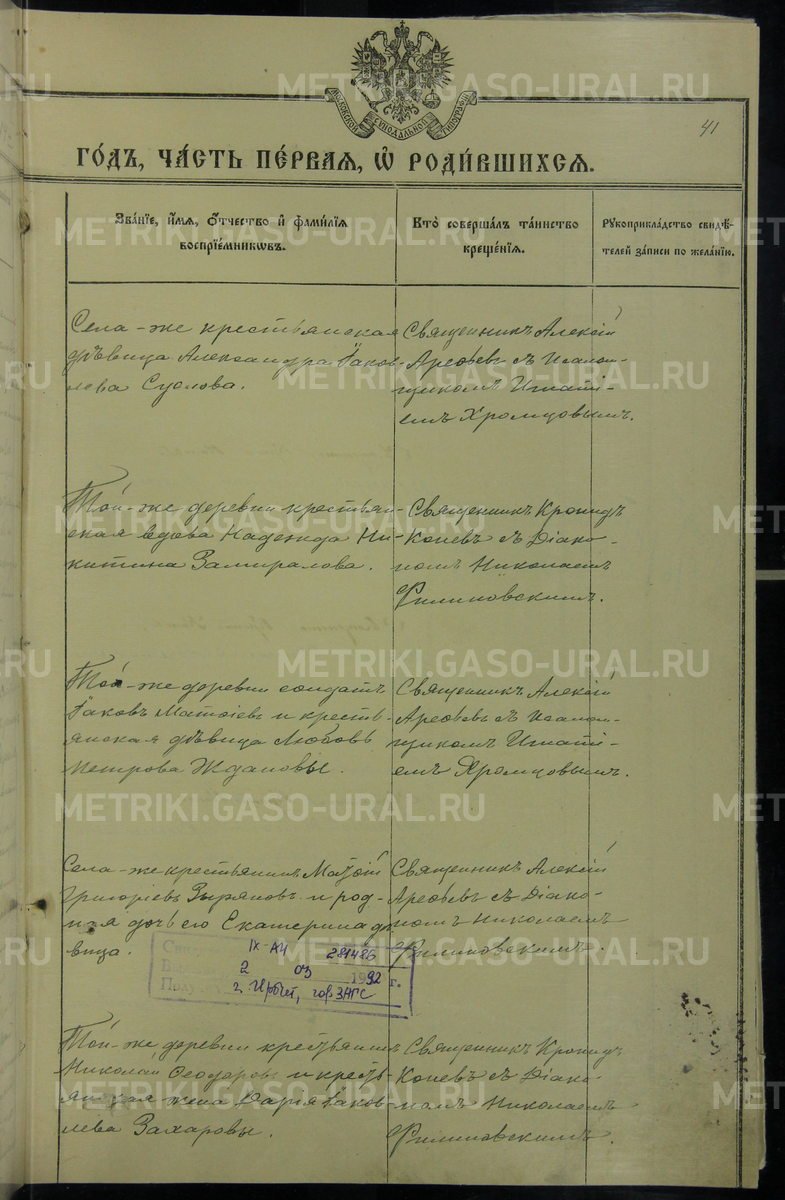 METRIKI.GASO-URAL.RU
МОСКОВСКОЙ СѴНОДАЛЬНОЙ ТИПОГРАФІИ
41
ГО́ДЪ, ЧА́СТЬ ПЕ́РВАЯ, Ѽ РОДИ́ВШИХСЯ.
Зва́нїе, и́мя, ѻ́тчество и фами́лїя
воспрїе́мникѡвъ.
Кто̀ соверша́лъ та́инство
креще́нїя.
Рꙋкоприкла́дство свидѣ́-
телей за́писи по жела́нїю.
Села-же крестьянская
дѣвица Александра Іаков-
лева Суслова.
Священникъ Алексій
Арефьевъ съ Псалом-
щикомъ Игнаті-
емъ Хромцовымъ.
Той-же деревни крестьян-
ская вдова Надежда Ни-
китина Замиралова.
Священникъ Кронидъ
Копевъ съ Діако-
номъ Николаемъ
Филиповскимъ.
Той-же деревни солдатъ
Іаковъ Матѳіевъ и кресть-
янская дѣвица Любовь
Петрова Ждановы.
Священникъ Алексій
Арефьевъ съ Псалом-
щикомъ Игнаті-
емъ Хромцовымъ.
Села-же крестьянинъ Матѳій
Григоріевъ Зыряновъ и род-
ная дочь его Екатерина дѣ-
вица.
Священникъ Алексій
Арефьевъ съ Діако-
номъ Николаемъ
Филиповскимъ.
IX-АИ 281486
2 03 1992 г.
г. Ирбит, гор. ЗАГС
Той-же деревни крестьянинъ
Николай Ѳеодоровъ и кресть-
янская жена Дарія Іаков-
лева Захаровы.
Священникъ Кронидъ
Копевъ съ Діако-
номъ Николаемъ
Филиповскимъ.